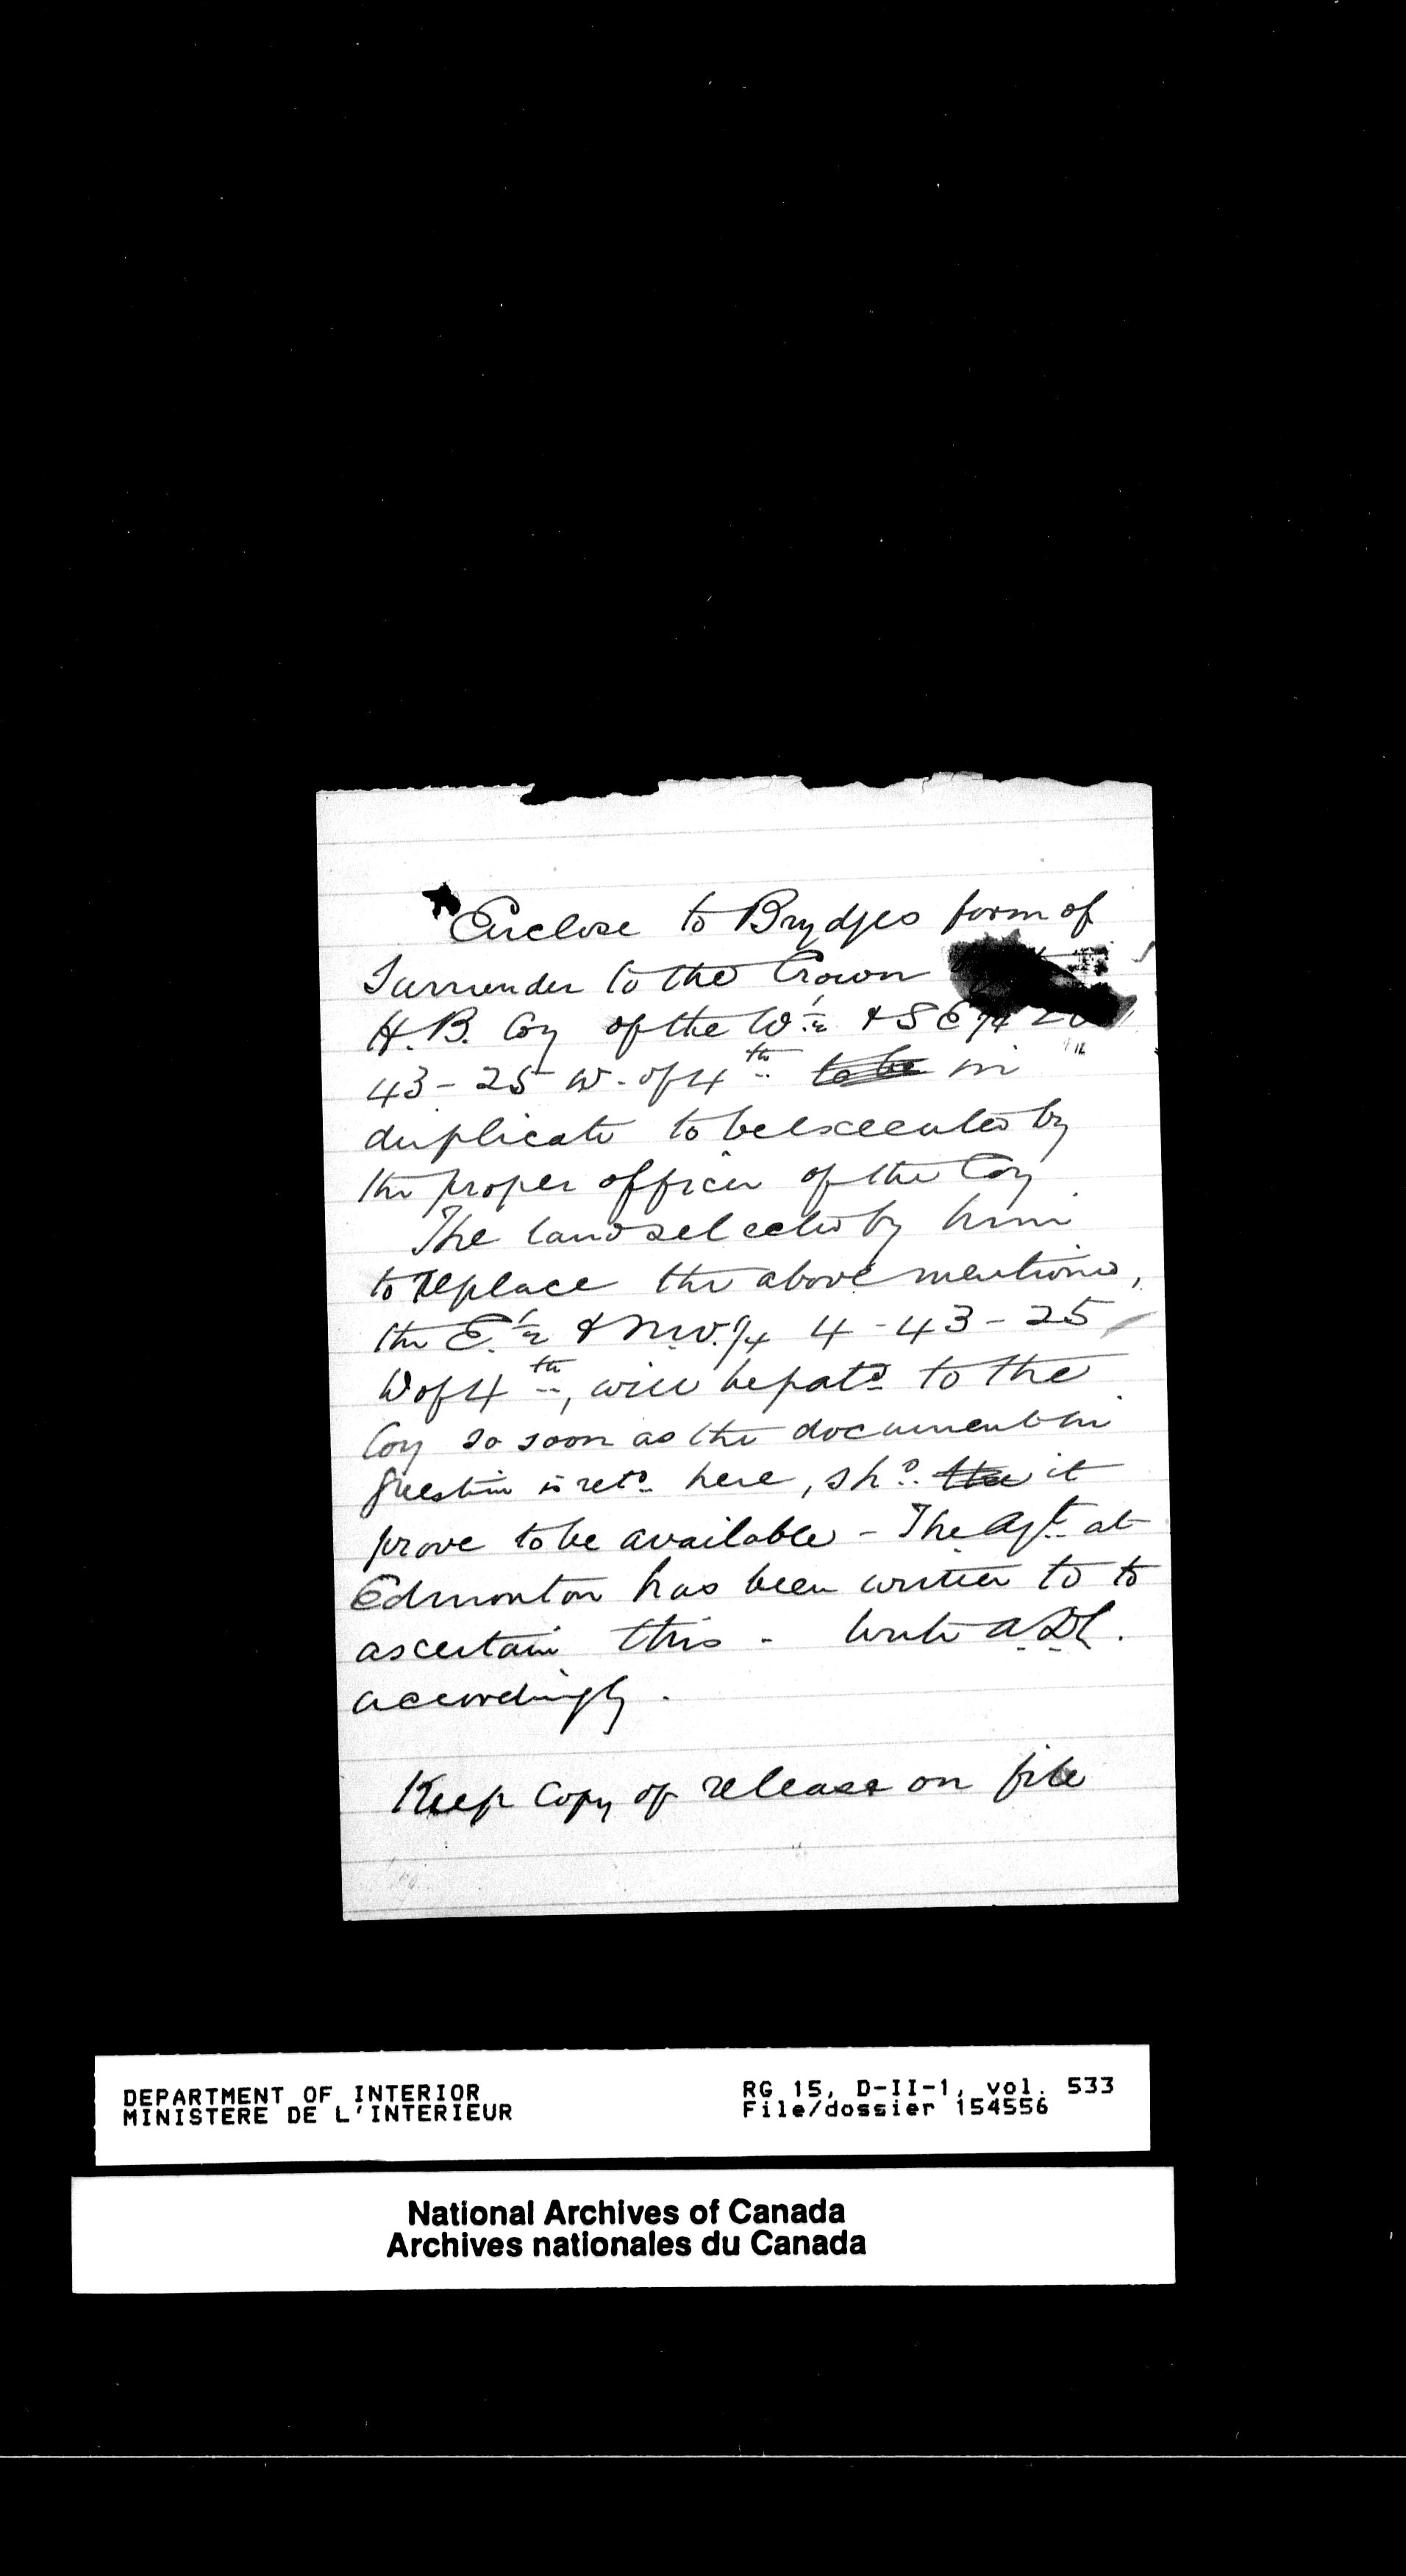 Enclose to Brydges form of
Surrender to the Crown
H. B. Coy of the W. ½ & S E ¼
43 - 25 W. of 4th to be in
duplicate to be executed by
the proper officer of the Coy
The land selected by him
to replace the above mentioned,
the E. ½ & N.W. ¼ 4 - 43 - 25
W of 4th, will be patd to the
Coy so soon as the document in
question is retd here, shd. the it
prove to be available - The Agt. at
Edmonton has been written to to
ascertain this - Write A.D.L.
accordingly.
Keep Copy of release on file
DEPARTMENT OF INTERIOR
MINISTERE DE L'INTERIEUR
RG 15, D-II-1, vol. 533
File/dossier 154556
National Archives of Canada
Archives nationales du Canada